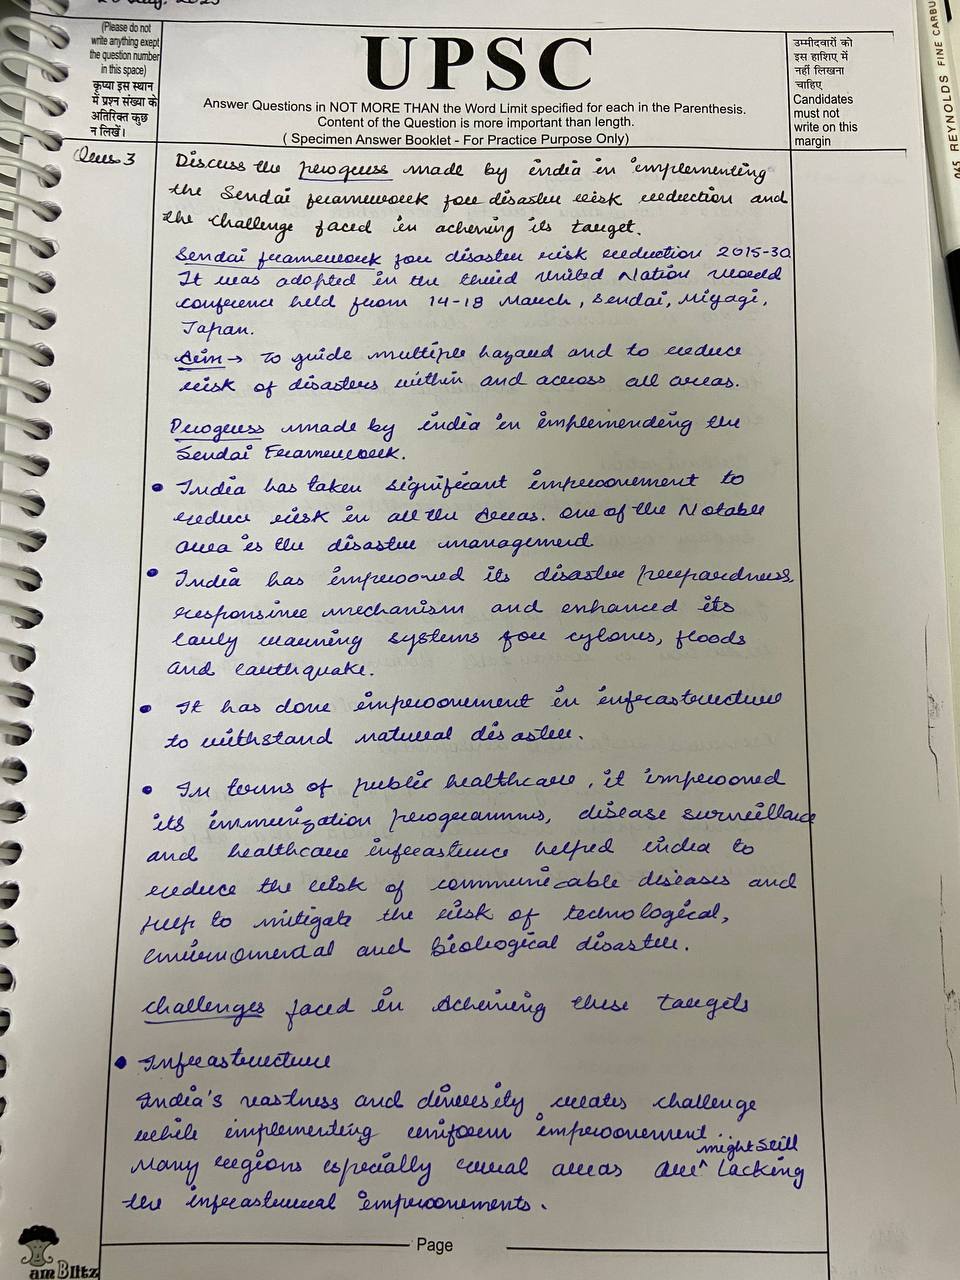 (Please do not
write anything exept
the question number
in this space)
कृप्या इस स्थान
में प्रश्न संख्या के
अतिरिक्त कुछ
न लिखें।
UPSC
Answer Questions in NOT MORE THAN the Word Limit specified for each in the Parenthesis.
Content of the Question is more important than length.
( Specimen Answer Booklet - For Practice Purpose Only)
उम्मीदवारों को
इस हाशिए में
नहीं लिखना
चाहिए
Candidates
must not
write on this
margin
REYNOLDS FINE CARBU
Ques 3
Discuss the progress made by india in implementing
the Sendai framework for disaster risk reduction and
the challenge faced in acheiving its target.
Sendai framework for disaster risk reduction 2015-30
It was adopted in the third United Nation world
conference held from 14-18 March, Sendai, Miyagi,
Japan.
Aim → To guide multiple hazard and to reduce
risk of disasters within and across all areas.
Progress made by india in implemending the
Sendai Framework.
• India has taken significant improvement to
reduce risk in all the Areas. One of the Notable
area is the disaster management
• India has improved its disaster prepardness,
responsive mechanism and enhanced its
early warning systems for cylones, floods
and earthquake.
• It has done improvement in infrastructure
to withstand natural disaster.
• In terms of public healthcare, it improved
its immunization programmus, disease surveillance
and healthcare infrastence helped india to
reduce the risk of communicable diseases and
help to mitigate the risk of technological,
enviromental and Biological disaster.
challenges faced in Acheiving these targets
• Infrastructure
India's vastness and diversity creates challenge
while implementing uniform improvement.
might still
Many regions especially rural areas are ^ lacking
the infrastrural improvements.
Page
am Blitz